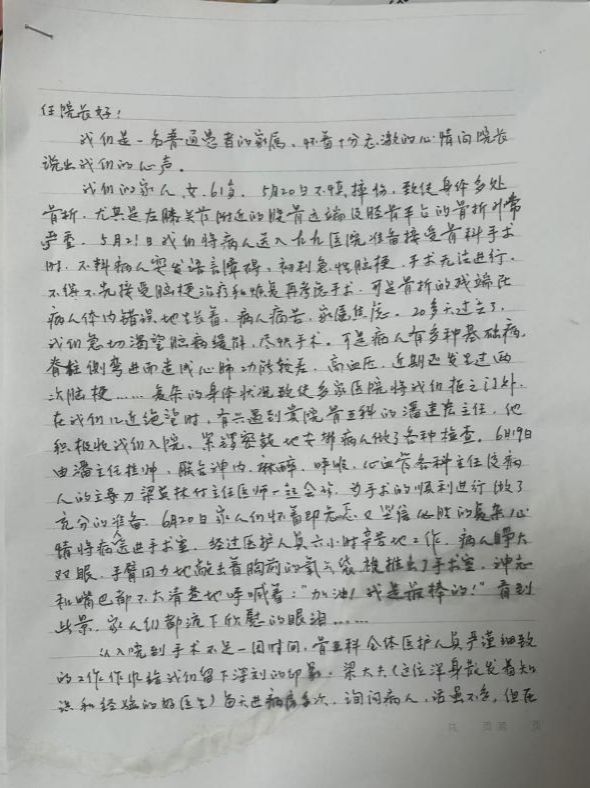 任院长好：
我们是一名普通患者的家属，怀着十分感激的心情向院长
说出我们的心声。
我们的家人，女，61岁，5月20日不慎摔伤，致使身体多处
骨折，尤其是左膝关节附近的股骨远端及胫骨平台的骨折非常
严重，5月21日我们将病人送入九九医院准备接受骨科手术
时，不料病人突发语言障碍，初到急性脑梗，手术无法进行，
不得不先接受脑梗治疗和恢复再考虑手术，可是骨折的残端在
病人体内错误地生长着，病人痛苦，家属焦虑。20多天过去了，
我们急切渴望脑病缓解，尽快手术。可是病人有多种基础病，
脊柱侧弯进而造成心肺功能较差，高血压，近期还发生过两
次脑梗……复杂的身体状况致使多家医院将我们拒之门外。
在我们几近绝望时，有幸遇到贵院骨五科的潘建宏主任，他
积极收我们入院，紧锣密鼓地安排病人做了各种检查。6月19日
由潘主任挂帅，联合神内、麻醉、呼吸、心血管各科主任及病
人的主导刀梁英林付主任医师一起会诊，为手术的顺利进行做了
充分的准备。6月20日家人们怀着即忐忑又坚信必胜的复杂心
情将病人送进手术室，经过医护人员六小时辛苦地工作，病人睁大
双眼，手臂用力地敲击着胸前的氧气袋被推出了手术室，神志
和嘴巴都不太清楚地呼喊着：“加油！我是最棒的！”看到
此景，家人们都流下欣慰的眼泪……
从入院到手术不足一周时间，骨五科全体医护人员严谨细致
的工作作风给我们留下深刻的印象，梁大夫（这位浑身散发着知
识和经验的好医生）每天进病房多次，询问病人，话虽不多，但在
共 页 第 页